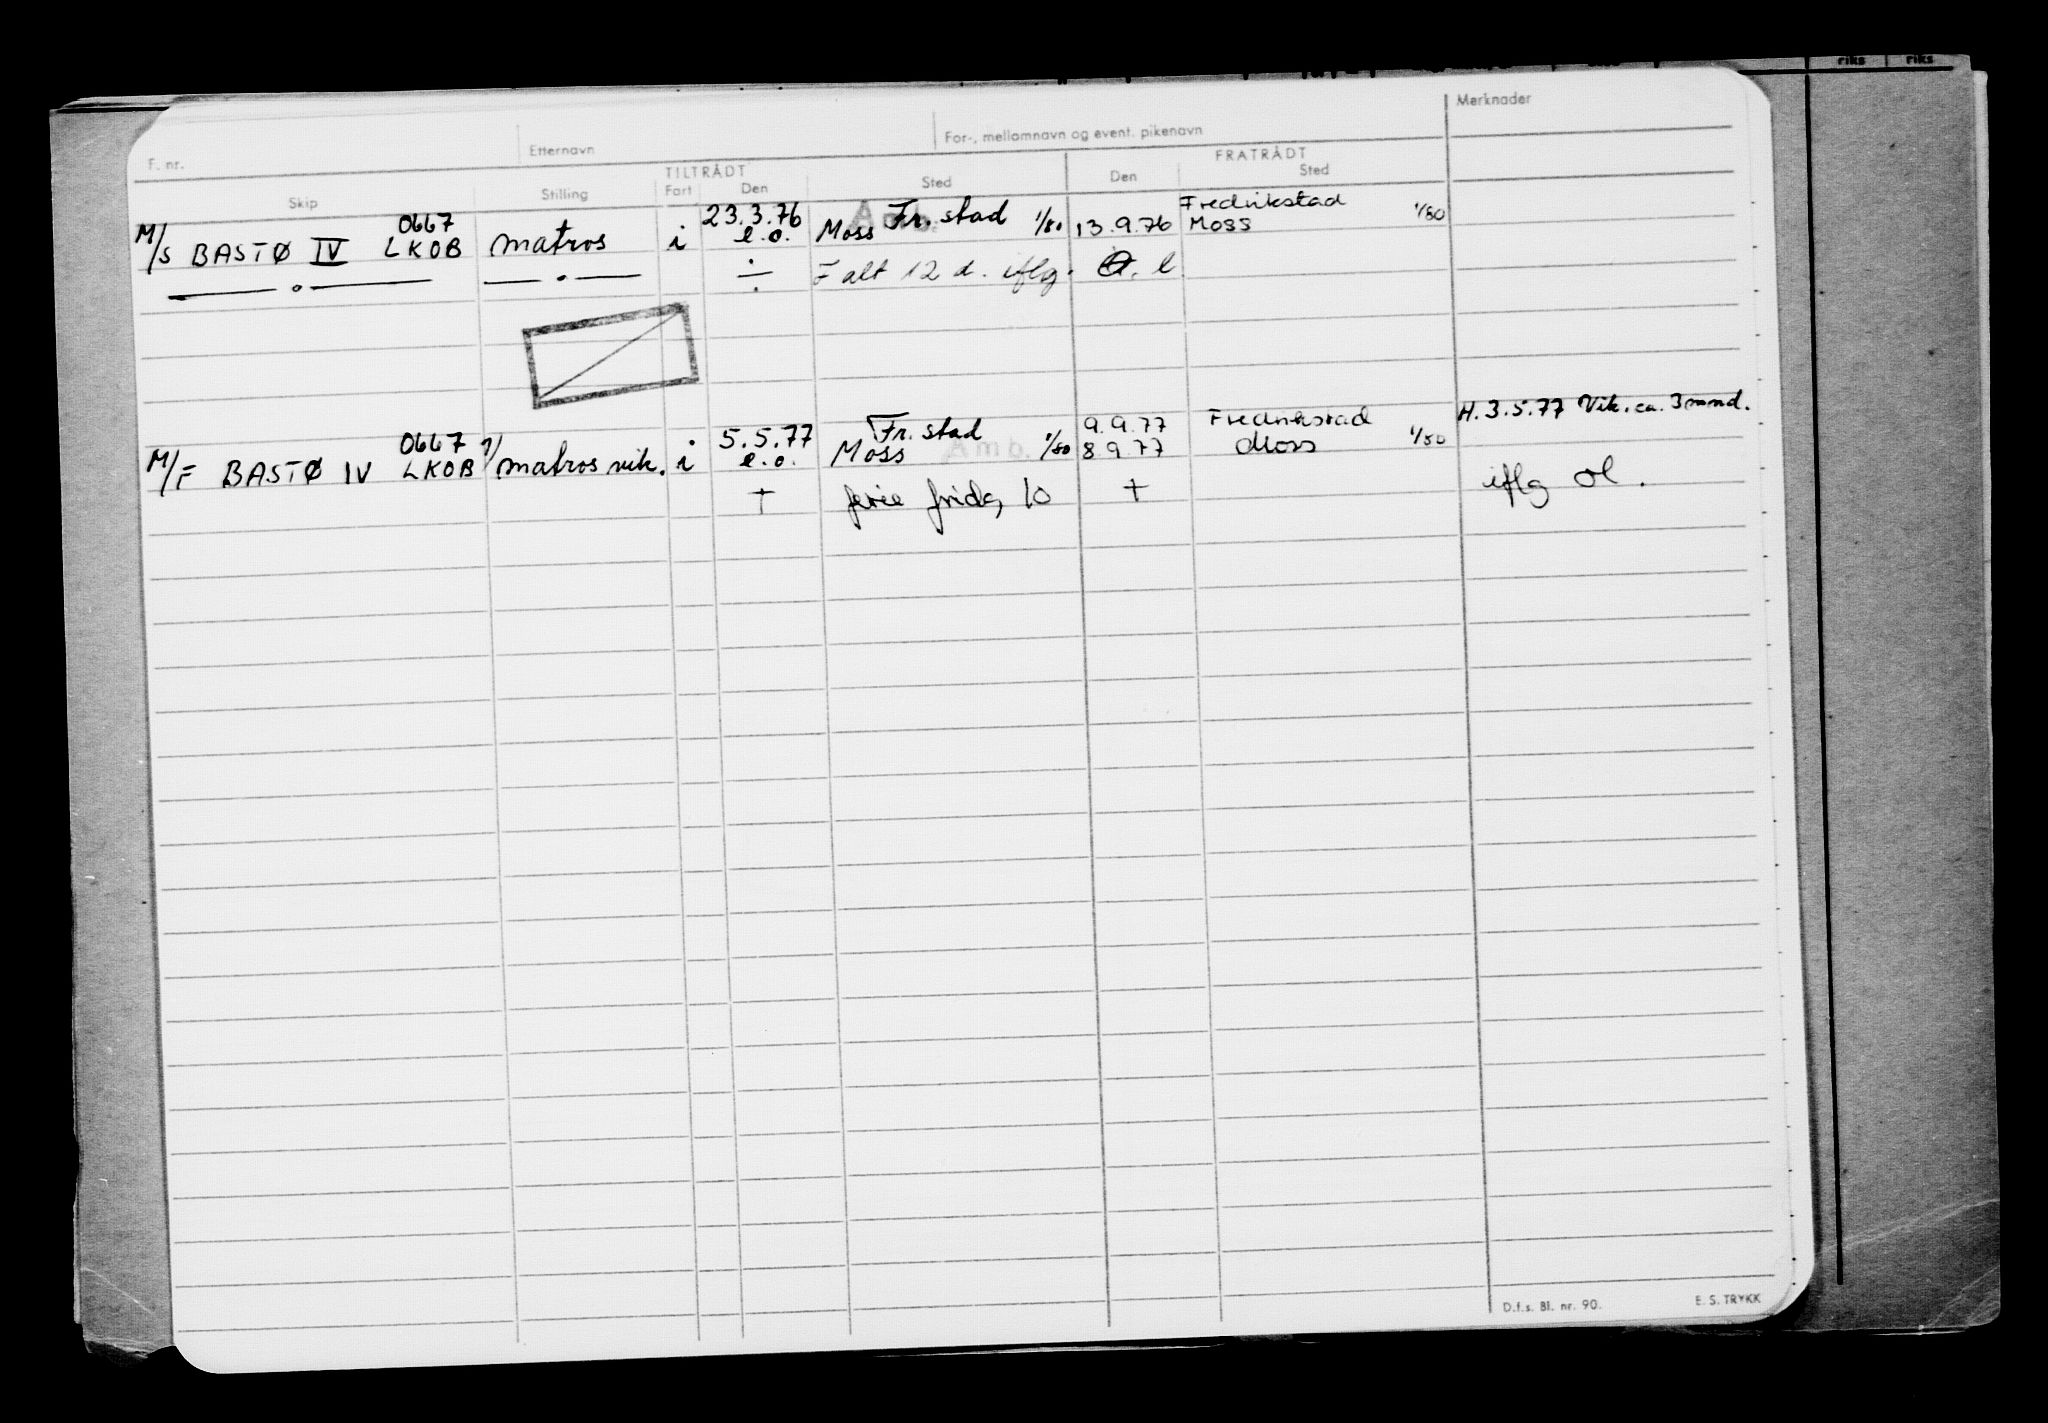 riks riks
F. nr. Etternavn For-, mellomnavn og event. pikenavn Merknader
TILTRÅDT FRATRÅDT
Skip Stilling Fart Den Sted Den Sted
0667 23.3.76 Amb. Fr. stad Fredrikstad
M/S BASTØ IV LKOB matros i e.o. Moss 1/80 13.9.76 Moss 1/80
— o — — . — ÷ F alt 12 d. iflg. l
H. 3.5.77 Vik. ca. 3 mnd.
0667 5.5.77 Fr. stad 9.9.77 Fredrikstad
M/F BASTØ IV LKOB 1/ matros vik. i e.o. Moss Amb. 1/80 8.9.77 Moss 1/80
+ ferie frida, 10 + iflg ol.
D.f.s. Bl. nr. 90. E. S. TRYKK